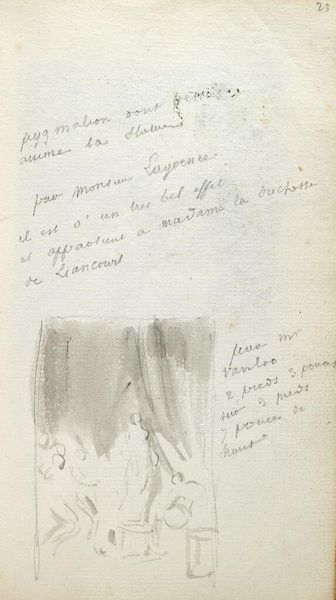 23
pygmalion dont venus
anime la statue
par monsieur Lagrenee
il est d'un tres bel effet
et appartient a madame la duchesse
de Liancourt
feu mr
vanloo
2 pieds 3 pouces
sur 3 pieds
7 pouces de
haut